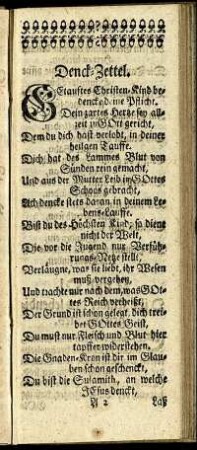 Denck-Zettel.
GEtaufftes Christen-Kind be-
dencke deine Pflicht.
Dein zartes Hertze sey all-
zeit zu GOtt gericht,
Dem du dich hast verlobt, in deiner
heilgen Tauffe.
Dich hat des Lammes Blut von
Sünden rein gemacht,
Und aus der Mutter Leib in GOttes
Schoos gebracht,
Ach dencke stets daran in deinem Le-
bens-Lauffe.
Bist du des Höchsten Kind, so diene
nicht der Welt,
Die vor die Jugend nur Verfüh-
rungs-Netze stellt,
Verläugne, was sie liebt, ihr Wesen
muß vergehen,
Und trachte nur nach dem, was GOt-
tes Reich verheißt,
Der Grund ist schon gelegt, dich trei-
bet GOttes Geist,
Du must nur Fleisch und Blut hier
tapffer widerstehen.
Die Gnaden-Kron ist dir im Glau-
ben schon geschenckt,
Du bist die Sulamith, an welche
JEsus denckt,
A 2 Laß